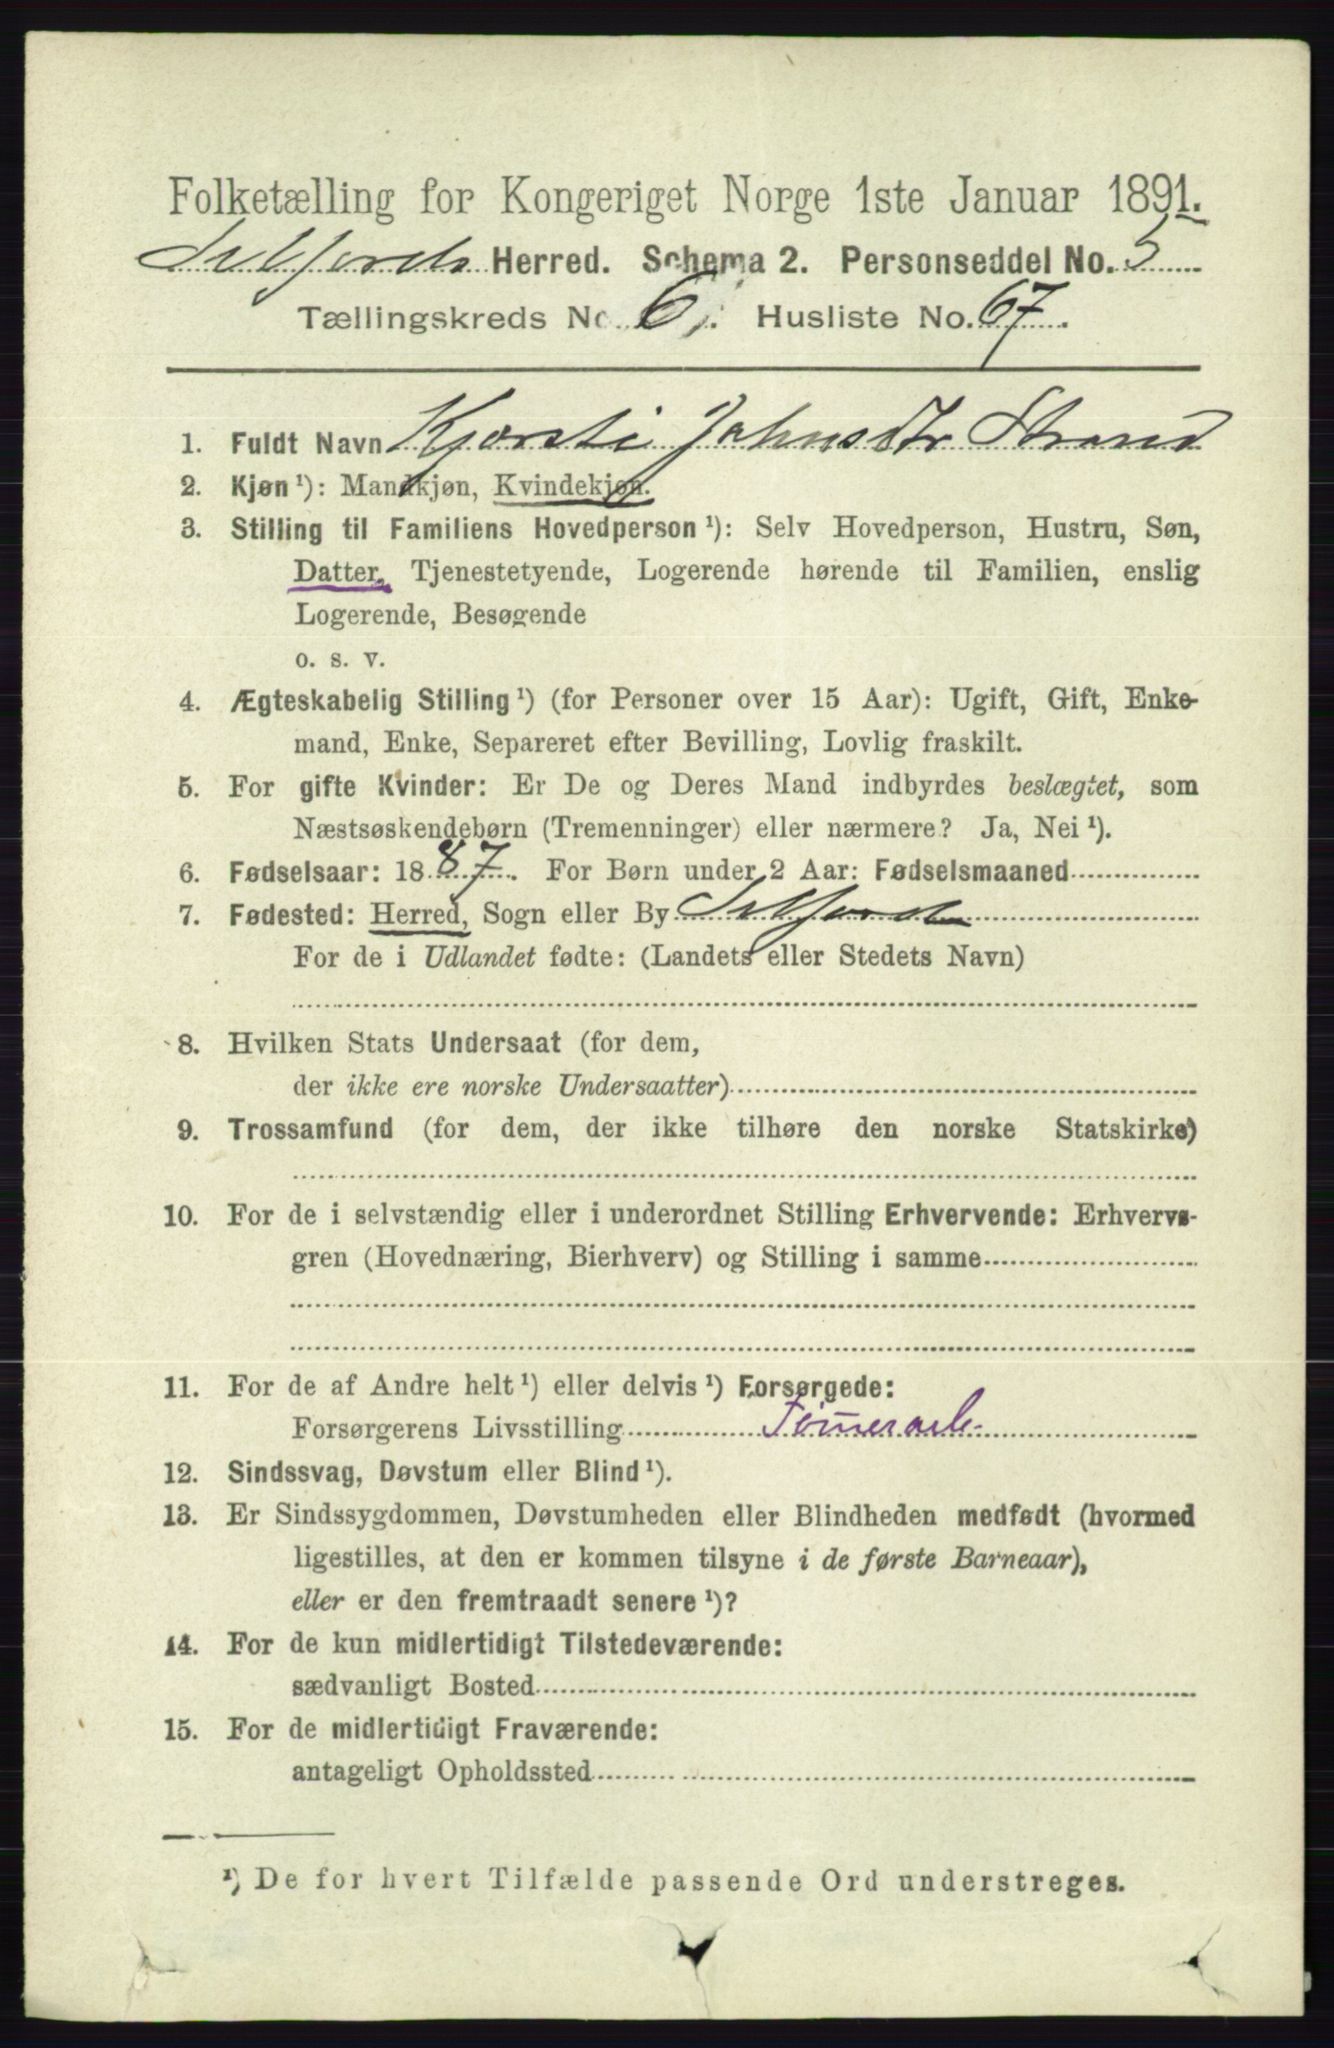 Folketælling for Kongeriget Norge 1ste Januar 1891.
Seljords Herred. Schema 2. Personseddel No. 5
Tællingskreds No. 6. Husliste No. 67.
1. Fuldt Navn Kjørsti Johnsdtr Strand
2. Kjøn ¹): Mandkjøn, Kvindekjøn.
3. Stilling til Familiens Hovedperson ¹): Selv Hovedperson, Hustru, Søn,
Datter, Tjenestetyende, Logerende hørende til Familien, enslig
Logerende, Besøgende
o. s. v.
4. Ægteskabelig Stilling ¹) (for Personer over 15 Aar): Ugift, Gift, Enke-
mand, Enke, Separeret efter Bevilling, Lovlig fraskilt.
5. For gifte Kvinder: Er De og Deres Mand indbyrdes beslægtet, som
Næstsøskendebørn (Tremenninger) eller nærmere? Ja, Nei ¹).
6. Fødselsaar: 1887. For Børn under 2 Aar: Fødselsmaaned
7. Fødested: Herred, Sogn eller By Seljord
For de i Udlandet fødte: (Landets eller Stedets Navn)
8. Hvilken Stats Undersaat (for dem,
der ikke ere norske Undersaatter)
9. Trossamfund (for dem, der ikke tilhøre den norske Statskirke)
10. For de i selvstændig eller i underordnet Stilling Erhvervende: Erhvervs-
gren (Hovednæring, Bierhverv) og Stilling i samme
11. For de af Andre helt ¹) eller delvis ¹) Forsørgede:
Forsørgerens Livsstilling Tømerarb.
12. Sindssvag, Døvstum eller Blind ¹).
13. Er Sindssygdommen, Døvstumheden eller Blindheden medfødt (hvormed
ligestilles, at den er kommen tilsyne i de første Barneaar),
eller er den fremtraadt senere ¹)?
14. For de kun midlertidigt Tilstedeværende:
sædvanligt Bosted
15. For de midlertidigt Fraværende:
antageligt Opholdssted
¹) De for hvert Tilfælde passende Ord understreges.